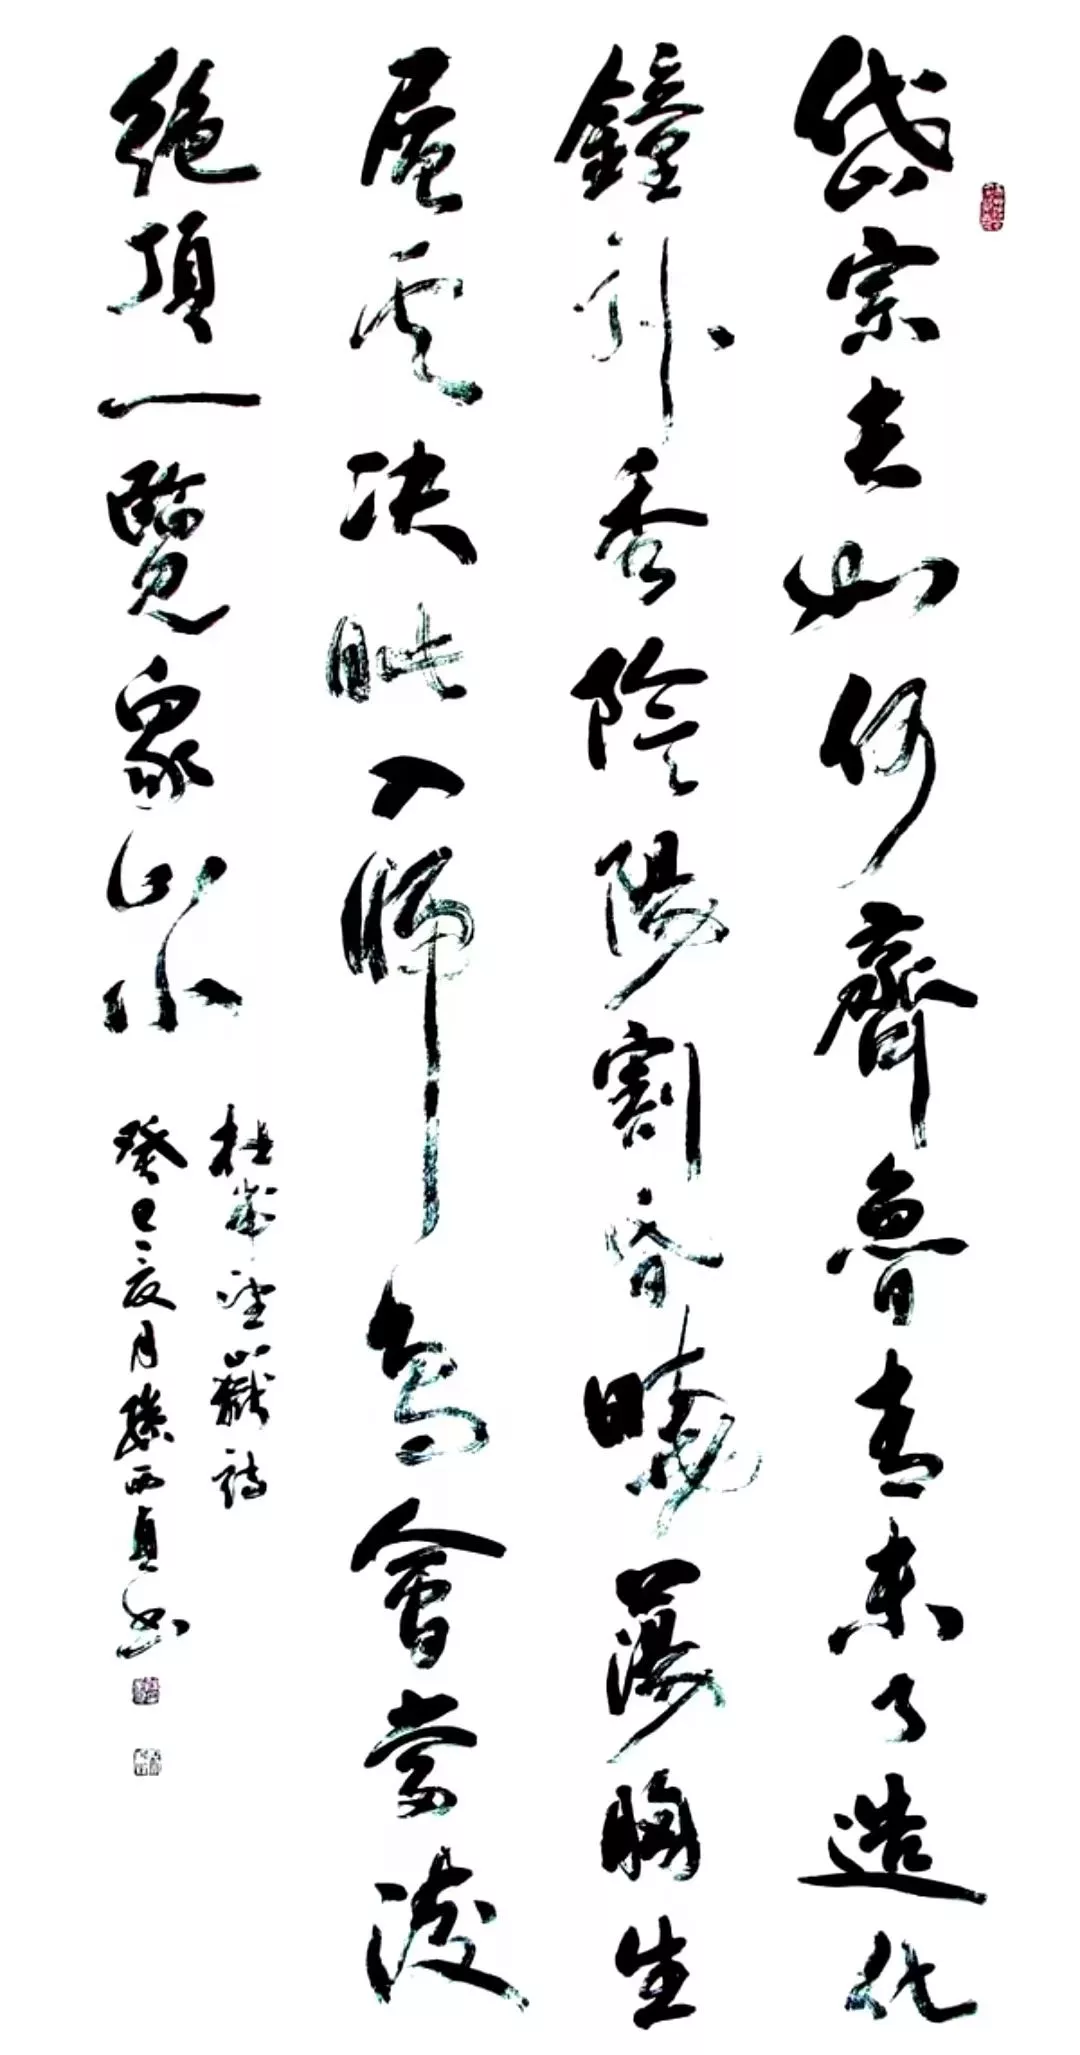 岱宗夫如何齊魯青未了造化
鐘神秀陰陽割昏曉蕩胸生
層雲決眦入歸鳥會當淩
絶頂一覽衆山小
杜甫望嶽詩
癸巳夏月西貞書